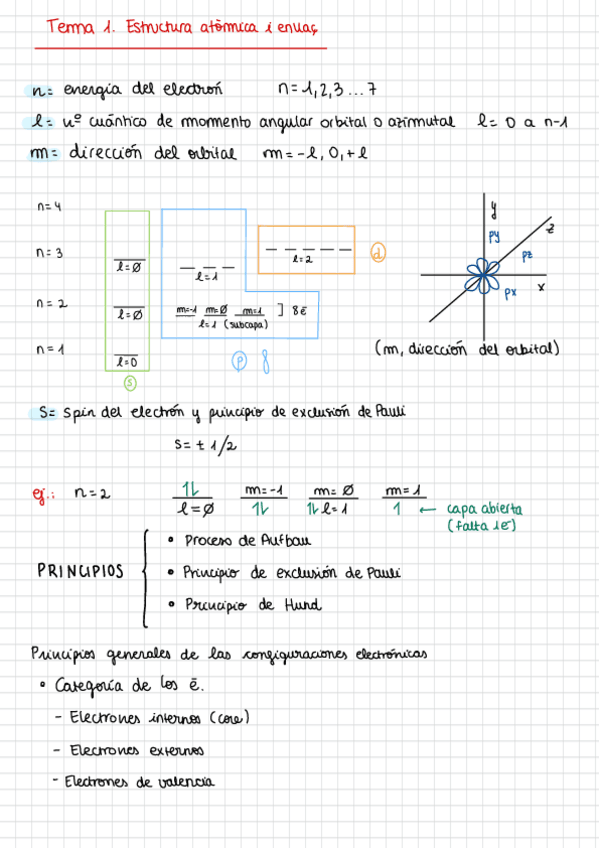 Tema 1. Estructura atòmica i enllaç
n= energía del electrón n=1,2,3...7
l= nº cuántico de momento angular orbital o azimutal l= 0 a n-1
m= dirección del orbital m=-l, 0,+l
n=4
n=3 l=Ø l=1 l=2 d
n=2 l=Ø m=-1 m=Ø m=1 ] 8ē
l=1 (subcapa)
n=1 l=0
s p f
y z x
py pz px
(m, dirección del orbital)
S= spin del electrón y principio de exclusión de Pauli
S= ± 1/2
ej.: n=2 1L l=Ø m=-1 1L m=Ø 1L l=1 m=1 1 ← capa abierta
(falta 1ē)
PRINCIPIOS
• Proceso de Aufbau
• Principio de exclusión de Pauli
• Principio de Hund
Principios generales de las configuraciones electrónicas
• Categoría de los ē.
- Electrones internos (core)
- Electrones externos
- Electrones de valencia